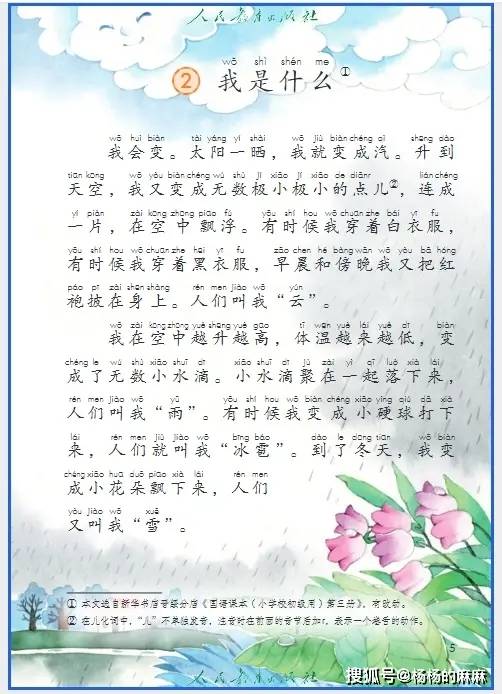 人民教育出版社
wǒ shì shén me
② 我是什么①
wǒ huì biàn tài yáng yí shài wǒ jiù biàn chéng qì shēng dào
我会变。太阳一晒，我就变成汽。升到
tiān kōng wǒ yòu biàn chéng wú shù jí xiǎo jí xiǎo de diǎnr lián chéng
天空，我又变成无数极小极小的点儿②，连成
yí piàn zài kōng zhōng piāo fú yǒu shí hou wǒ chuān zhe bái yī fu
一片，在空中飘浮。有时候我穿着白衣服，
yǒu shí hou wǒ chuān zhe hēi yī fu zǎo chen hé bàng wǎn wǒ yòu bǎ hóng
有时候我穿着黑衣服，早晨和傍晚我又把红
páo pī zài shēn shàng rén men jiào wǒ yún
袍披在身上。人们叫我“云”。
wǒ zài kōng zhōng yuè shēng yuè gāo tǐ wēn yuè lái yuè dī biàn
我在空中越升越高，体温越来越低，变
chéng le wú shù xiǎo shuǐ dī xiǎo shuǐ dī jù zài yì qǐ luò xià lái
成了无数小水滴。小水滴聚在一起落下来，
rén men jiào wǒ yǔ yǒu shí hou wǒ biàn chéng xiǎo yìng qiú dǎ xià
人们叫我“雨”。有时候我变成小硬球打下
lái rén men jiù jiào wǒ bīng báo dào le dōng tiān wǒ biàn
来，人们就叫我“冰雹”。到了冬天，我变
chéng xiǎo huā duǒ piāo xià lái rén men
成小花朵飘下来，人们
yòu jiào wǒ xuě
又叫我“雪”。
① 本文选自新华书店晋绥分店《国语课本（小学校初级用）第三册》，有改动。
② 在儿化词中，“儿”不单独发音，注音时在前面的音节后加r，表示一个卷舌的动作。
5
人民教育出版社
搜狐号@杨杨的麻麻